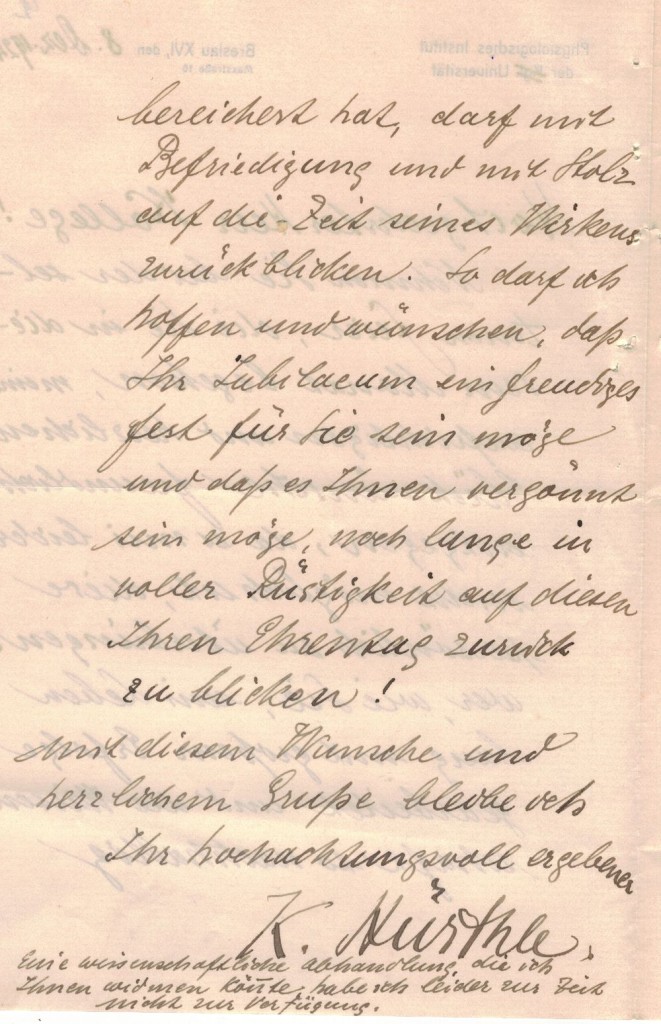 bereichert hat, darf mit
Befriedigung und mit Stolz
auf die Zeit seines Wirkens
zurückblicken. So darf ich
hoffen und wünschen, daß
Ihr Jubilaeum ein freudiges
Fest für Sie sein möge
und daß es Ihnen vergönnt
sein möge, noch lange in
voller Rüstigkeit auf diesen
Ihren Ehrentag zurück
zu blicken!
Mit diesem Wunsche und
herzlichem Gruße bleibe ich
Ihr hochachtungsvoll ergebener
K. Hürthle.
Eine wissenschaftliche Abhandlung, die ich
Ihnen widmen könnte, habe ich leider zur Zeit
nicht zur Verfügung.